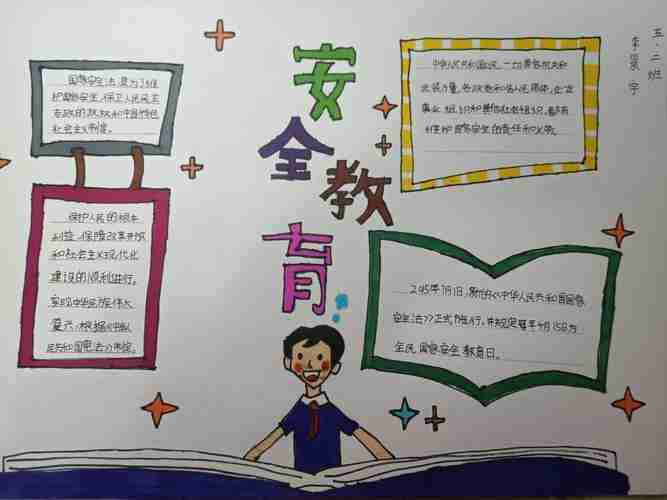 五.二班
李景宇
安全教育
国家安全法是为了维
护国家安全,保卫人民民主
专政的政权和中国特色
社会主义制度。
保护人民的根本
利益,保障改革开放
和社会主义现代化
建设的顺利进行。
实现中华民族伟大
复兴,根据《中华人
民共和国宪法》制定。
中华人民共和国公民、一切国家机关和
武装力量,各政党和各人民团体,企业
事业组织和其他社会组织,都有
维护国家安全的责任和义务。
2015年7月1日,新的《中华人民共和国国家
安全法》正式施行,并规定每年4月15日为
全民国家安全教育日。